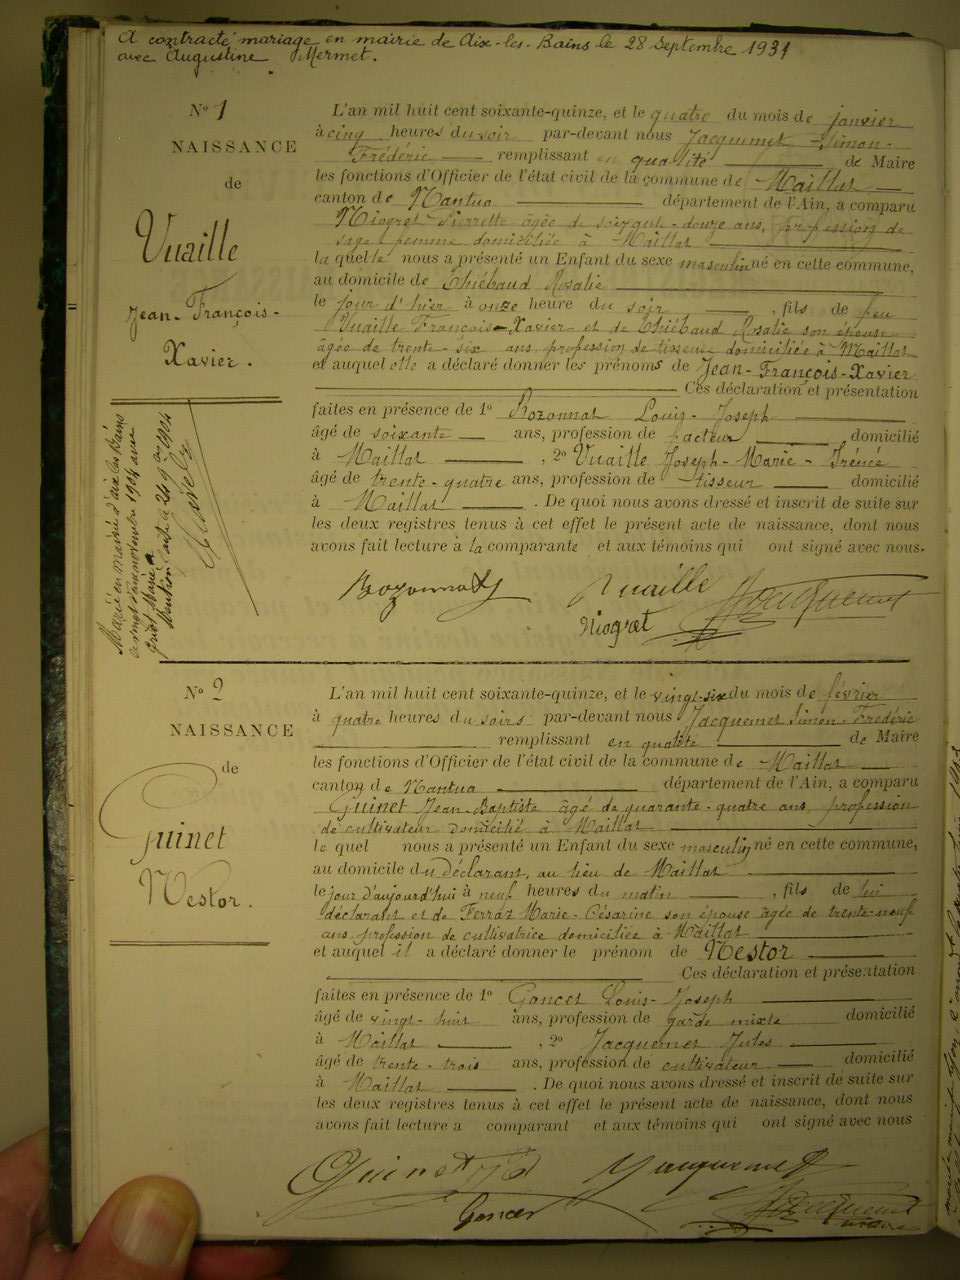 A contracté mariage en mairie de Aix-les-Bains le 28 Septembre 1931
avec Augustine Mermet.
N° 1
NAISSANCE
de
Vuaille
Jean-François-
Xavier.
Marié en mairie d'aix les bains
novembre 1904 avec
L'an mil huit cent soixante-quinze, et le quatre du mois de janvier
à cinq heures du soir par-devant nous Jacquemet Simon-
Frédéric remplissant en qualité de Maire
les fonctions d'Officier de l'état civil de la commune de Maillat
canton de Nantua département de l'Ain, a comparu
Niogret Pierrette âgée de soixante-douze ans, profession de
sage femme domiciliée à Maillat
la quelle nous a présenté un Enfant du sexe masculin né en cette commune,
au domicile de Thiébaud Rosalie
le jour d'hier à onze heure du soir, fils de feu
Vuaille François-Xavier et de Thiébaud Rosalie son épouse
âgée de trente-six ans, profession de tisseuse domiciliée à Maillat
et auquel elle a déclaré donner les prénoms de Jean-François-Xavier
Ces déclaration et présentation
faites en présence de 1° Bozonnat Louis-Joseph
âgé de soixante ans, profession de facteur domicilié
à Maillat, 2° Vuaille Joseph-Marie-Irénée
âgé de trente-quatre ans, profession de tisseur domicilié
à Maillat. De quoi nous avons dressé et inscrit de suite sur
les deux registres tenus à cet effet le présent acte de naissance, dont nous
avons fait lecture à la comparante et aux témoins qui ont signé avec nous.
Bozonnat Vuaille Jacquemet
Niogret
N° 2
NAISSANCE
de
Guinet
Nestor.
L'an mil huit cent soixante-quinze, et le vingt-six du mois de février
à quatre heures du soirs par-devant nous Jacquemet Simon-Frédéric
remplissant en qualité de Maire
les fonctions d'Officier de l'état civil de la commune de Maillat
canton de Nantua département de l'Ain, a comparu
Guinet Jean-Baptiste âgé de quarante-quatre ans, profession
de cultivateur domicilié à Maillat
le quel nous a présenté un Enfant du sexe masculin né en cette commune,
au domicile du déclarant, au lieu de Maillat
le jour d'aujourd'hui à neuf heures du matin, fils de lui
déclarant et de Ferraz Marie-Césarine son épouse âgée de trente-neuf
ans, profession de cultivatrice domiciliée à Maillat
et auquel il a déclaré donner le prénom de Nestor
Ces déclaration et présentation
faites en présence de 1° Goncet Louis-Joseph
âgé de vingt-huit ans, profession de garde mixte domicilié
à Maillat, 2° Jacquemet Jules
âgé de trente-trois ans, profession de cultivateur domicilié
à Maillat. De quoi nous avons dressé et inscrit de suite sur
les deux registres tenus à cet effet le présent acte de naissance, dont nous
avons fait lecture a comparant et aux témoins qui ont signé avec nous
Guinet JB Jacquemet
Goncet Jacquemet